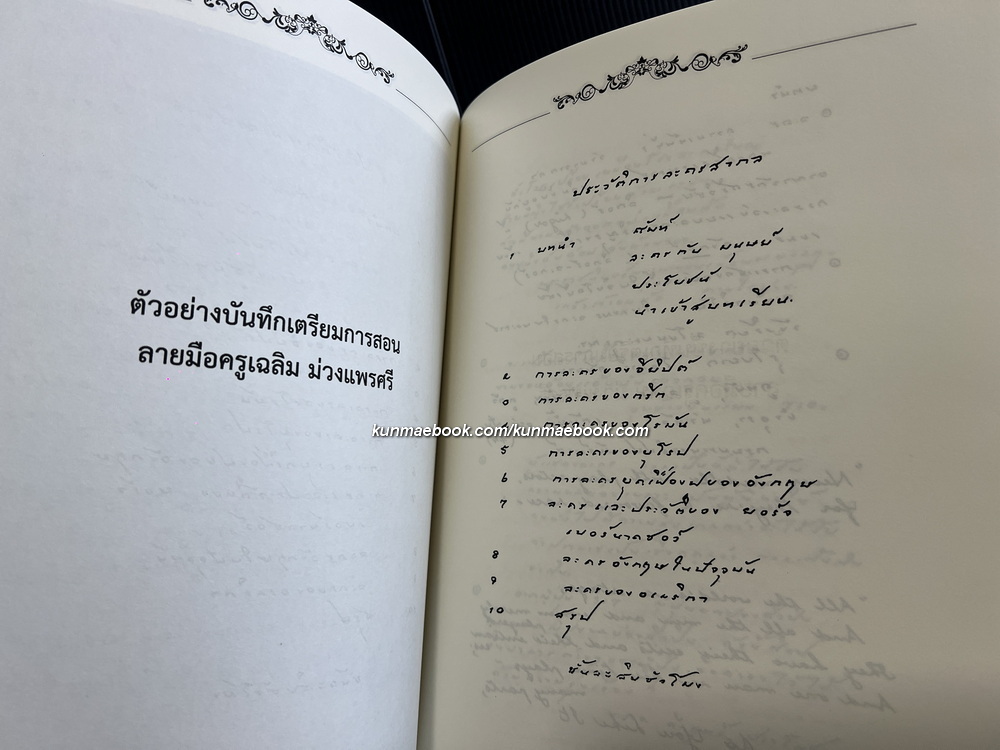 ตัวอย่างบันทึกเตรียมการสอน
ลายมือครูเฉลิม ม่วงแพรศรี
ประวัติการละครสากล
1 บทนำ ศัพท์
ละครกับ มนุษย์
ประโยชน์
นำเข้าสู่บทเรียน.
2 การละครของอียิปต์
3 การละครของกรีก
การละครของโรมัน
kunmaebook.com/kunmaebook.com
5 การละครของยุโรป
6 การละครยุคเฟื่องฟูของอังกฤษ
7 ละครและประวัติของ ยอร์จ
เบอร์นาดชอว์
8 ละครอังกฤษในปัจจุบัน
9 ละครของอเมริกา
10 สรุป
ชั้นละสิบชั่วโมง